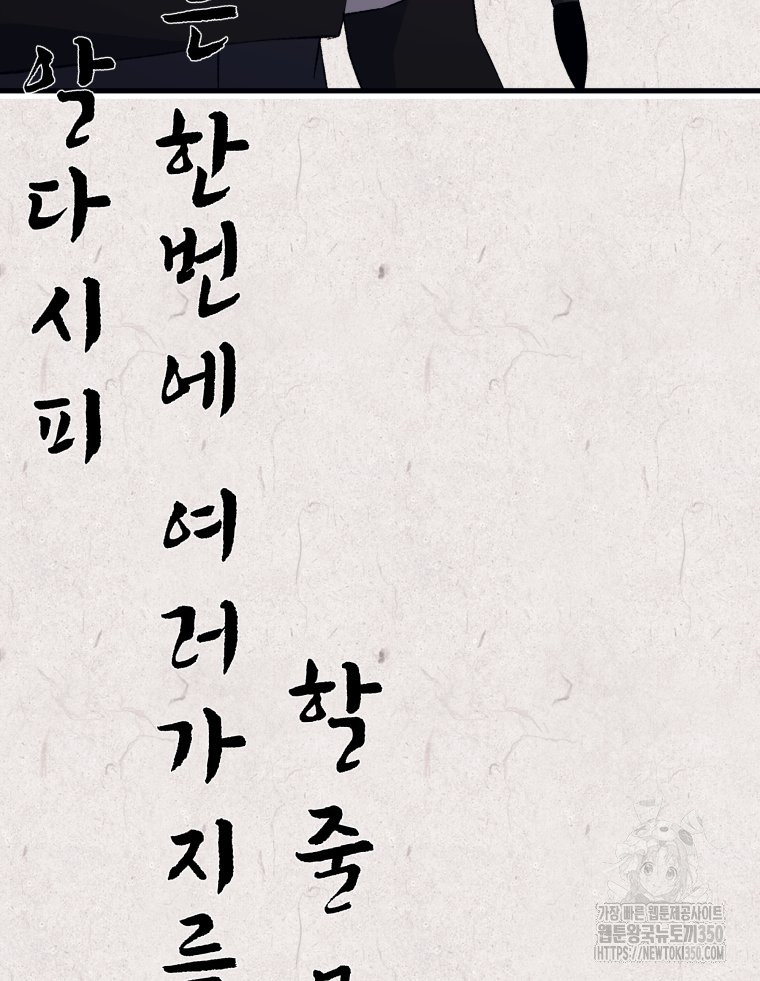 알다시피
는 한번에 여러가지를
할 줄
가장 빠른 웹툰제공사이트
웹툰왕국뉴토끼350
HTTPS://NEWTOKI350.COM